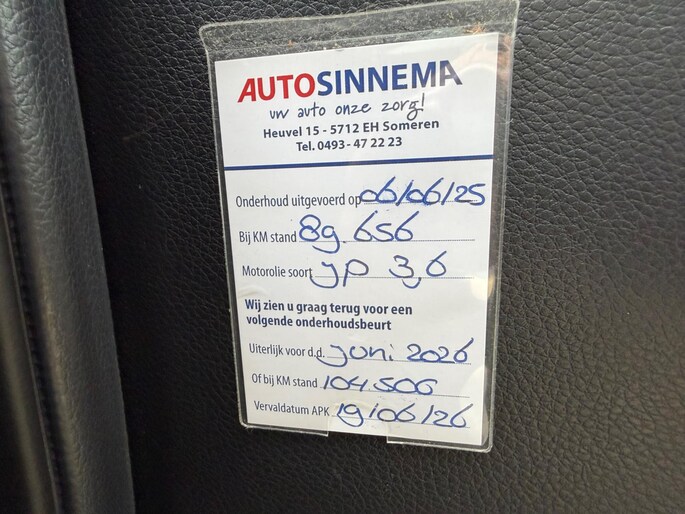 AUTOSINNEMA
uw auto onze zorg!
Heuvel 15 - 5712 EH Someren
Tel. 0493 - 47 22 23
Onderhoud uitgevoerd op 06/06/25
Bij KM stand 89.656
Motorolie soort JP 3,6
Wij zien u graag terug voor een
volgende onderhoudsbeurt
Uiterlijk voor d.d. juni 2026
Of bij KM stand 104.506
Vervaldatum APK 19/06/26